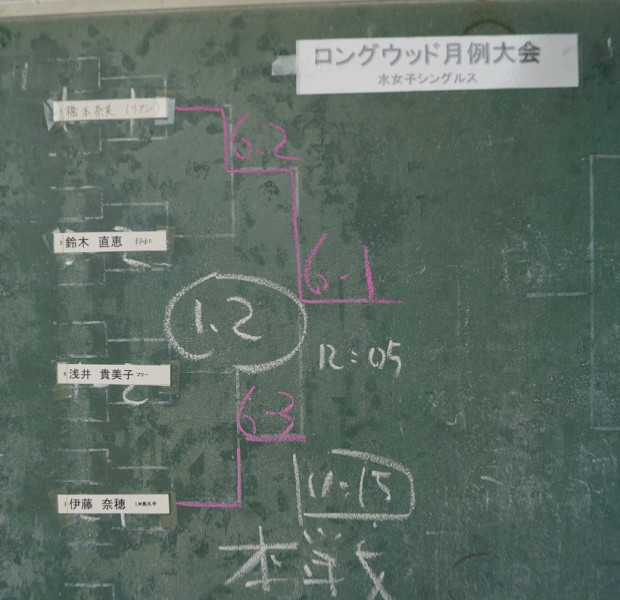 ロングウッド月例大会
水女子シングルス
橋本奈美 (リアン)
6-2
鈴木 直恵
6-1
1.2
12:05
浅井 貴美子 フリー
6-3
11:15
伊藤 奈穂
本戦